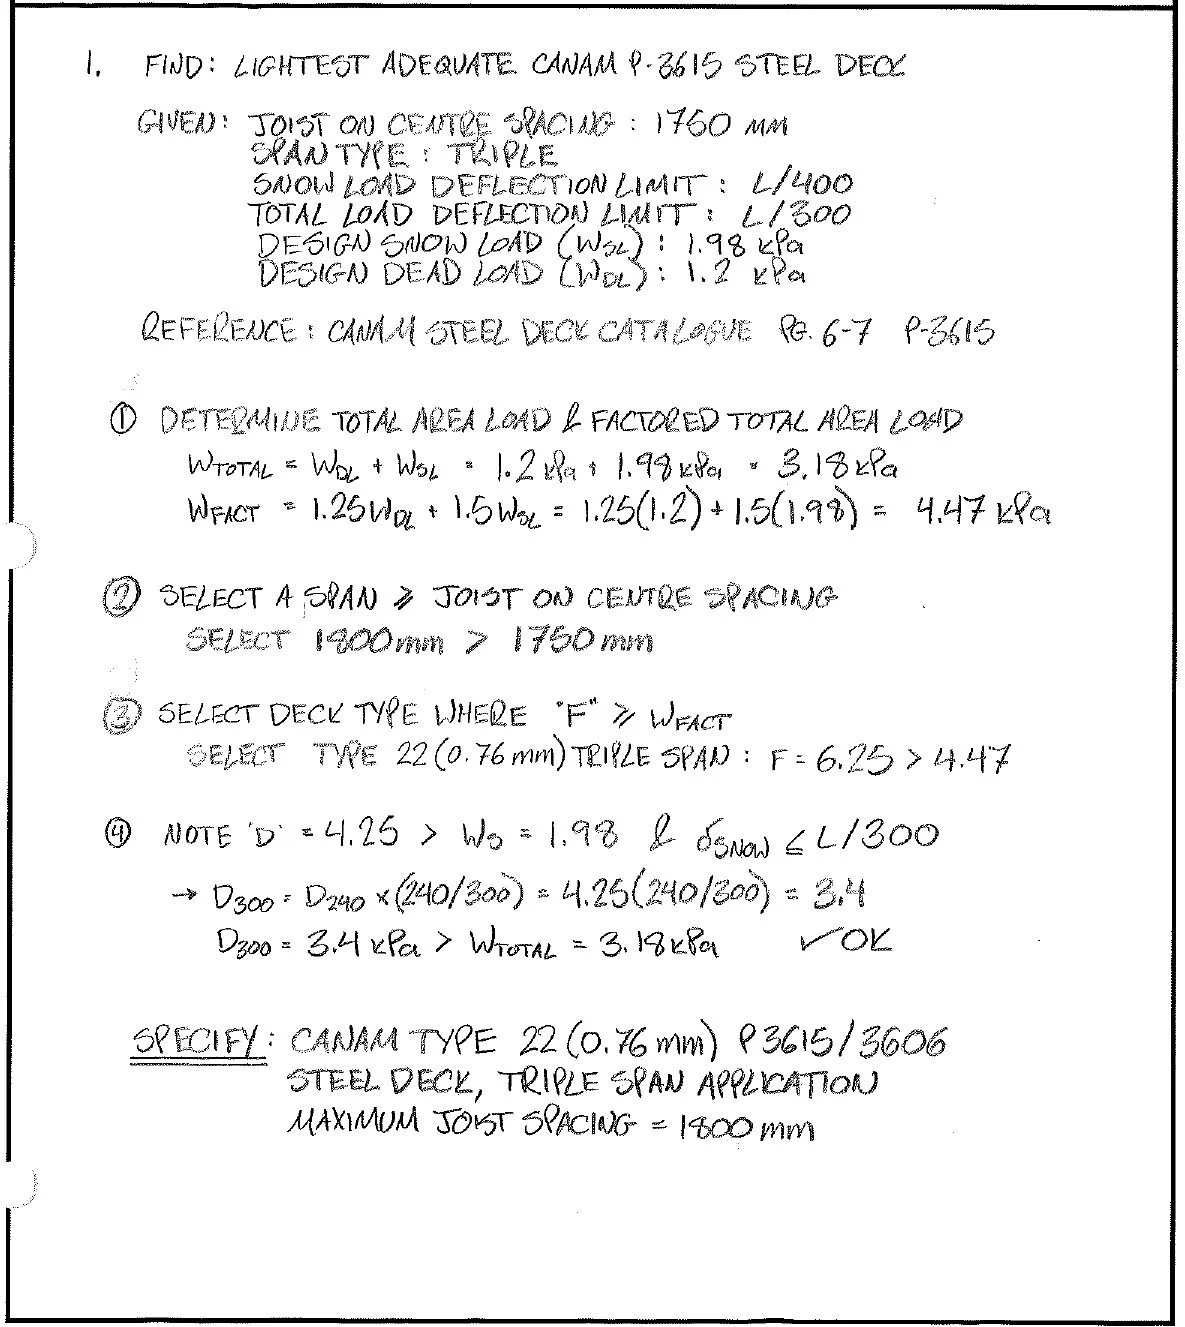 1. FIND: LIGHTEST ADEQUATE CANAM P-3615 STEEL DECK
GIVEN: JOIST ON CENTRE SPACING : 1750 MM
SPAN TYPE : TRIPLE
SNOW LOAD DEFLECTION LIMIT : L/400
TOTAL LOAD DEFLECTION LIMIT : L/300
DESIGN SNOW LOAD (WSL) : 1.98 kPa
DESIGN DEAD LOAD (WDL) : 1.2 kPa
REFERENCE : CANAM STEEL DECK CATALOGUE PG. 6-7 P-3615
① DETERMINE TOTAL AREA LOAD & FACTORED TOTAL AREA LOAD
WTOTAL = WDL + WSL = 1.2 kPa + 1.98 kPa = 3.18 kPa
WFACT = 1.25WDL + 1.5WSL = 1.25(1.2) + 1.5(1.98) = 4.47 kPa
② SELECT A SPAN ≥ JOIST ON CENTRE SPACING
SELECT 1800mm > 1750mm
③ SELECT DECK TYPE WHERE "F" ≥ WFACT
SELECT TYPE 22 (0.76mm) TRIPLE SPAN : F = 6.25 > 4.47
④ NOTE 'D' = 4.25 > WS = 1.98 & δSNOW ≤ L/300
→ D300 = D240 × (240/300) = 4.25(240/300) = 3.4
D300 = 3.4 kPa > WTOTAL = 3.18kPa ✓OK
SPECIFY: CANAM TYPE 22 (0.76mm) P3615/3606
STEEL DECK, TRIPLE SPAN APPLICATION
MAXIMUM JOIST SPACING = 1800mm